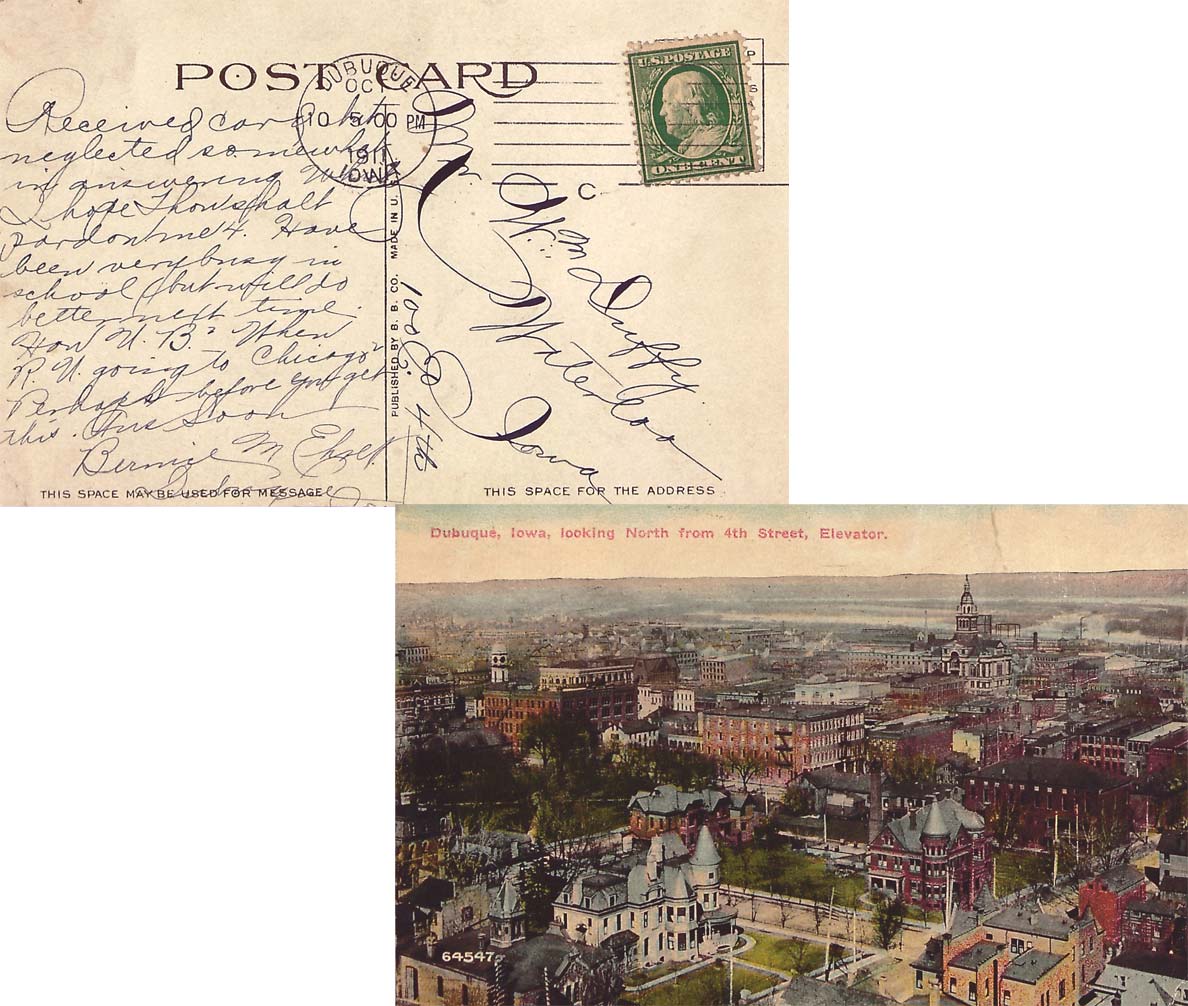 POST CARD
DUBUQUE
OCT
10 5 00 PM
1911
IOWA
U.S. POSTAGE
ONE CENT
C
Received card but
neglected somewhat
in answering. Why
I hope Thou shalt
pardon me 4. Have
been very busy in
school but will do
better next time.
How U. B.? When
R. U. going to Chicago?
Perhaps before you get
this. Ans soon
Bernice M
Dubuque
PUBLISHED BY B. B. CO. MADE IN U. S. A.
Mr.
Wm Duffy
Waterloo
Iowa
4th
THIS SPACE MAY BE USED FOR MESSAGE
THIS SPACE FOR THE ADDRESS
Dubuque, Iowa, looking North from 4th Street, Elevator.
64547